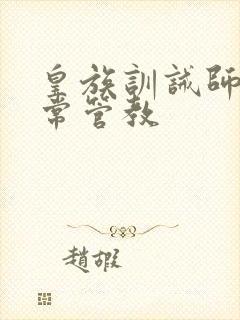 皇族訓誡師
常管教
趙嘏